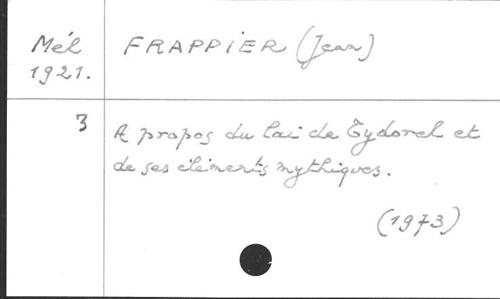 Mél FRAPPIER (Jean)
1921.
3 A propos du lai de Tydorel et
de ses éléments mythiques.
(1973)